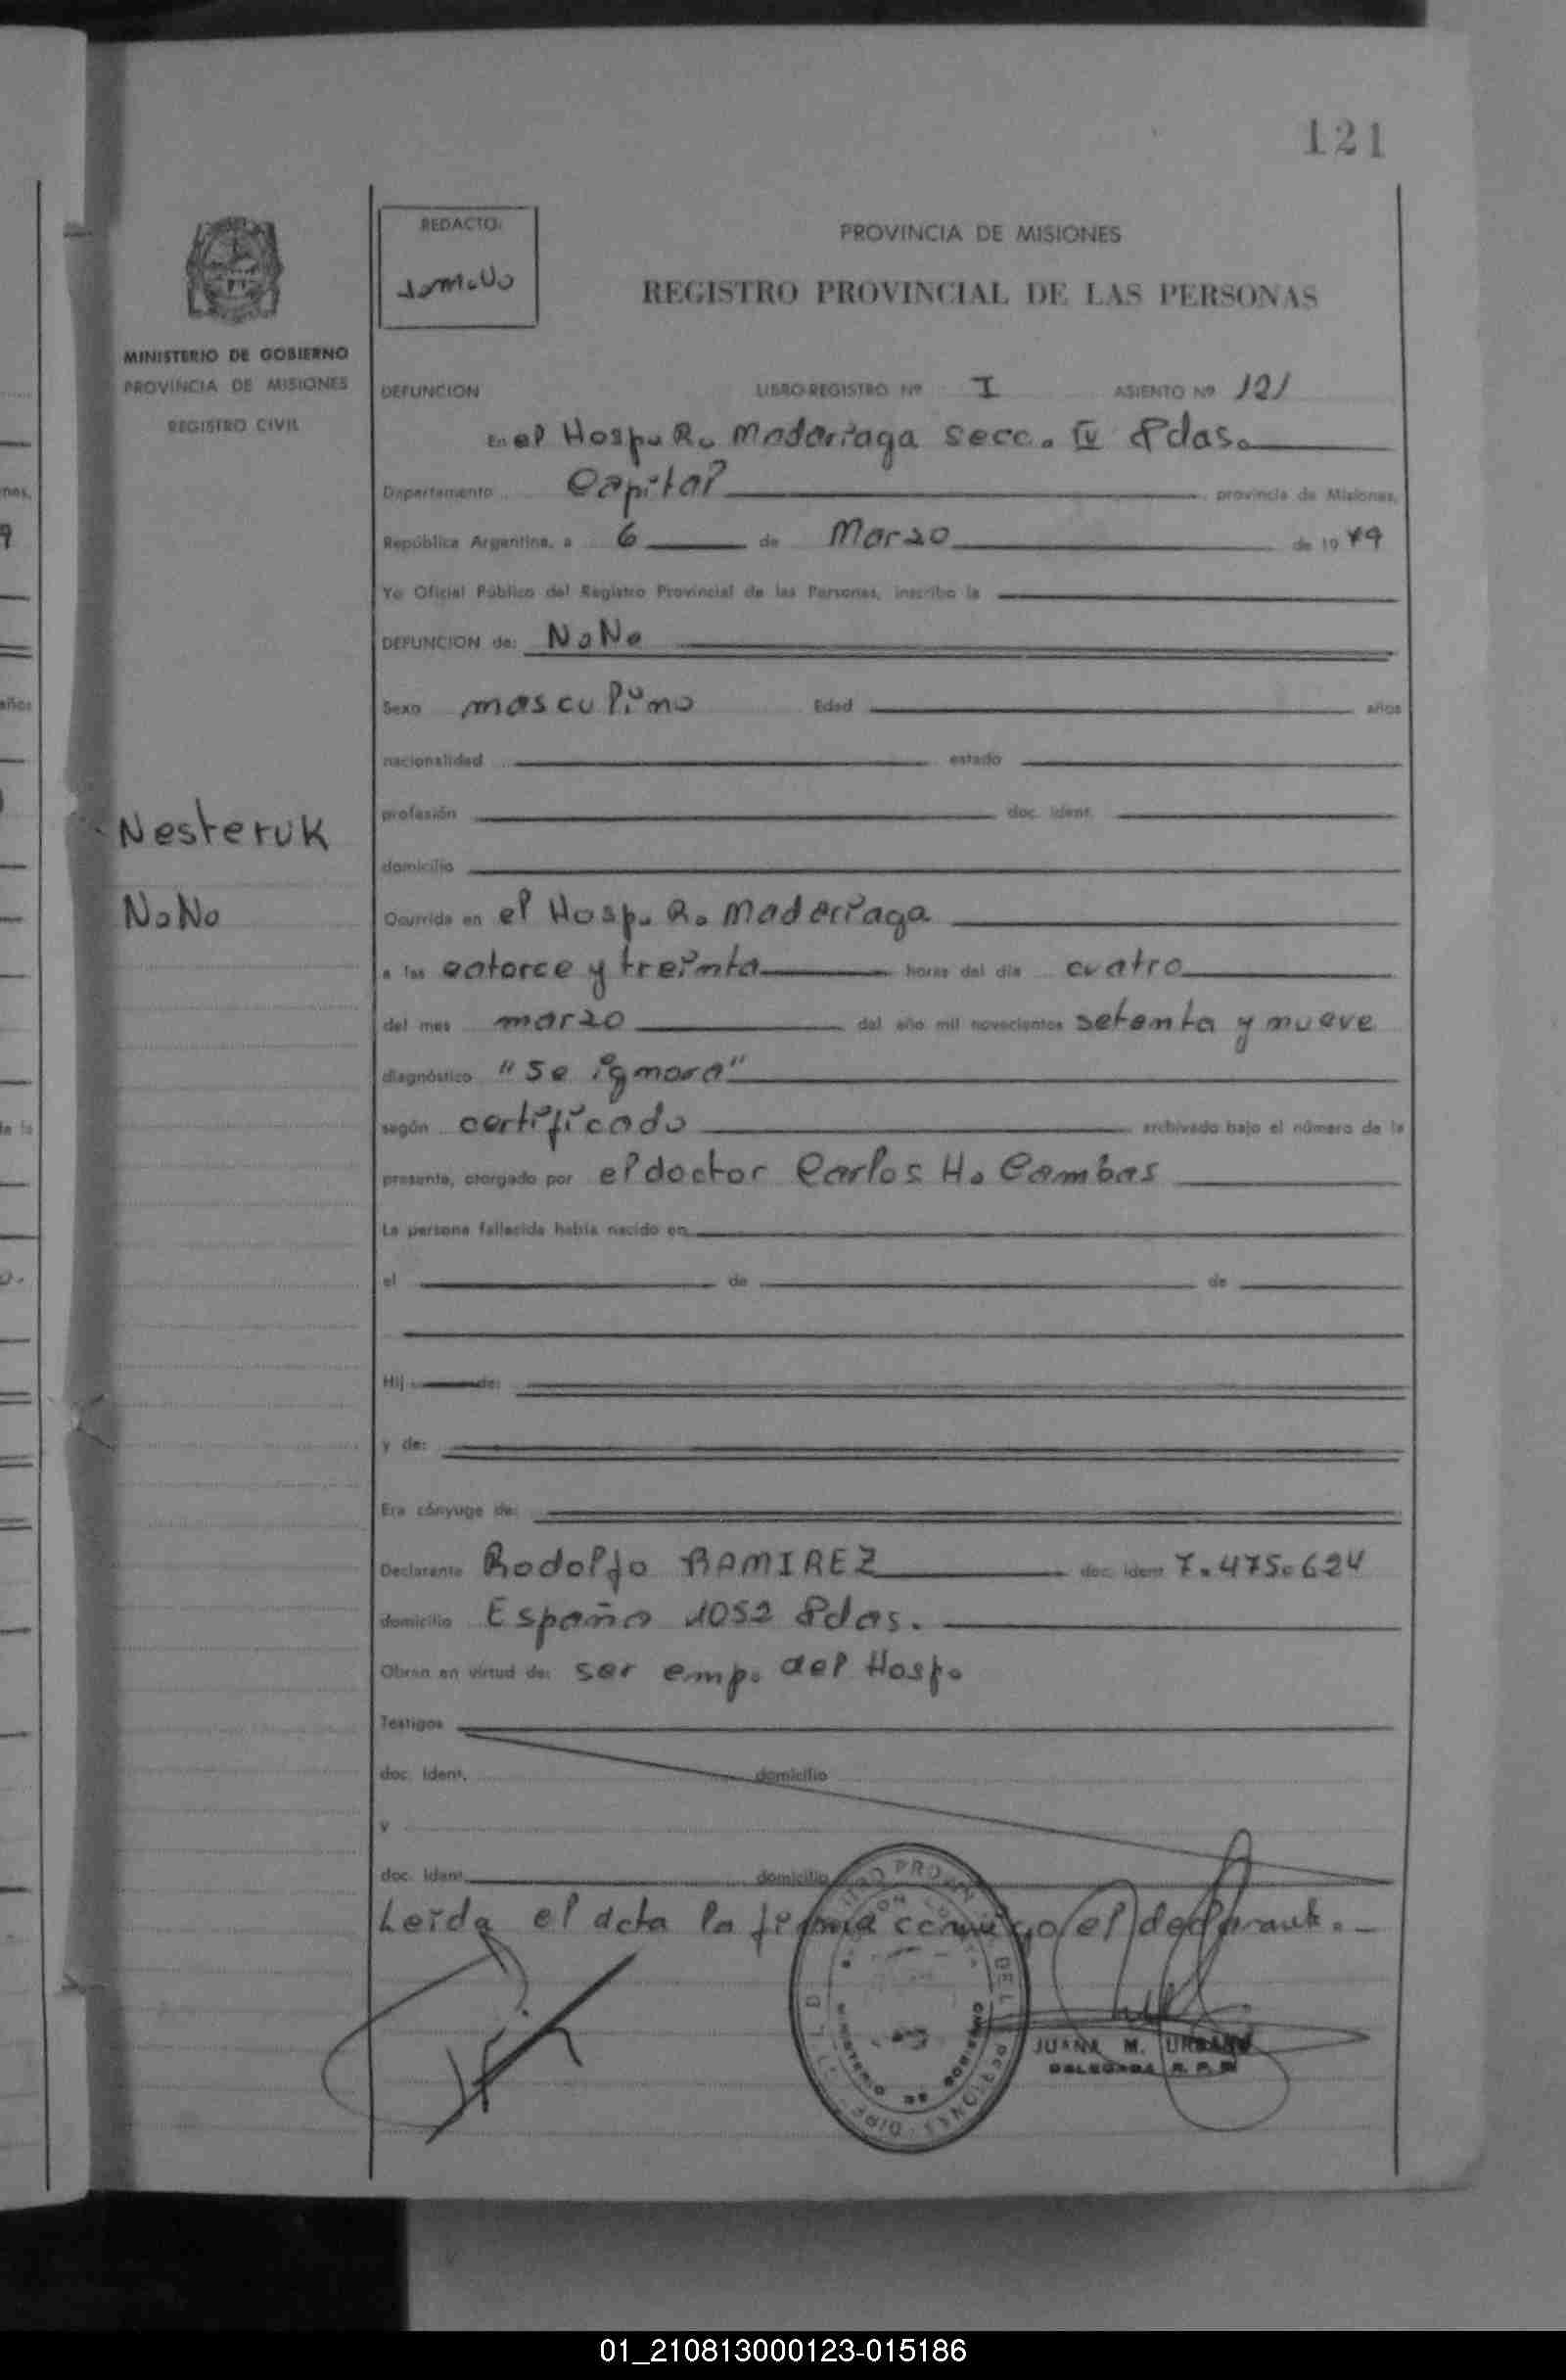 121
REDACTO:
PROVINCIA DE MISIONES
REGISTRO PROVINCIAL DE LAS PERSONAS
MINISTERIO DE GOBIERNO
PROVINCIA DE MISIONES
REGISTRO CIVIL
DEFUNCION LIBRO-REGISTRO Nº I ASIENTO Nº 121
En el Hosp. R. Madariaga secc. IV Pdas.
Departamento Capital provincia de Misiones,
República Argentina, a 6 de Marzo de 19 79
Yo Oficial Público del Registro Provincial de las Personas, inscribo la
DEFUNCION de: N.N.
Sexo masculino Edad años
nacionalidad estado
profesión doc. ident.
Nesteruk
domicilio
N.N.
Ocurrida en el Hosp. R. Madariaga
a las catorce y treinta horas del día cuatro
del mes marzo del año mil novecientos setenta y nueve
diagnóstico "se ignora"
según certificado archivado bajo el número de la
presente, otorgado por el doctor Carlos H. Cambas
La persona fallecida había nacido en
el de de
Hij de:
y de:
Era cónyuge de:
Declarante Rodolfo RAMIREZ doc. ident. 7.475.624
domicilio España 1052 Pdas.
Obran en virtud de: ser emp. del Hosp.
Testigos
doc. ident. domicilio
y
doc. ident. domicilio
Leida el acta la firma conmigo el declarante.-
JUANA M. URBANO
DELEGADA R. P. P.
MINISTERIO DE GOBIERNO
01_210813000123-015186